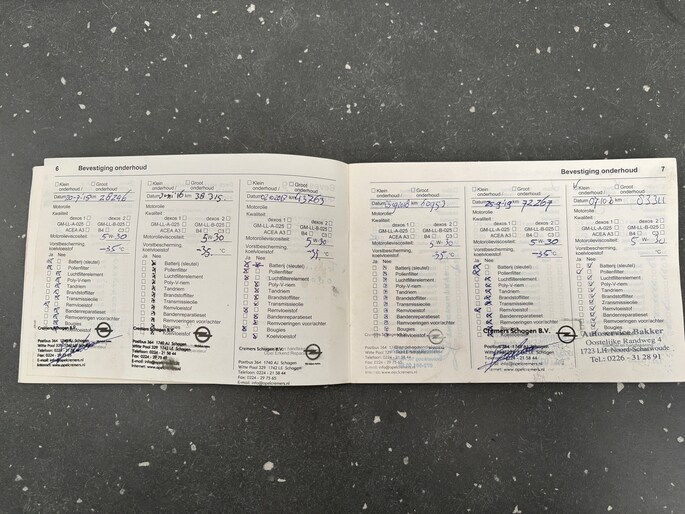 6 Bevestiging onderhoud
Klein onderhoud / Groot onderhoud
Datum 30-7-15 km 28246
Motorolie:
Kwaliteit:
dexos 1 dexos 2
GM-LL-A-025 GM-LL-B-025
ACEA A3 B4 C3
Motorolieviscositeit: 5W30
Vorstbescherming, koelvloeistof -35 °C
Ja Nee
Batterij (sleutel)
Pollenfilter
Luchtfilterelement
Poly-V-riem
Tandriem
Brandstoffilter
Transmissieolie
Remvloeistof
Bandenreparatieset
Remvoeringen voor/achter
Bougies
Koelvloeistof
Cremers Schagen B.V.
Postbus 364 1740 AJ Schagen
Witte Paal 329 1742 LE Schagen
Telefoon: 0224 - 21 58 44
Internet: www.opelcremers.nl
Klein onderhoud / Groot onderhoud
Datum km 38315
Motorolie:
Kwaliteit:
dexos 1 dexos 2
GM-LL-A-025 GM-LL-B-025
ACEA A3 B4 C3
Motorolieviscositeit: 5W30
Vorstbescherming, koelvloeistof -35 °C
Ja Nee
Batterij (sleutel)
Pollenfilter
Luchtfilterelement
Poly-V-riem
Tandriem
Brandstoffilter
Transmissieolie
Remvloeistof
Bandenreparatieset
Remvoeringen voor/achter
Bougies
Koelvloeistof
Cremers Schagen B.V.
Postbus 364 1740 AJ Schagen
Witte Paal 329 1742 LE Schagen
Telefoon: 0224 - 21 58 44
Klein onderhoud / Groot onderhoud
Datum km
Motorolie:
Kwaliteit:
dexos 1 dexos 2
GM-LL-A-025 GM-LL-B-025
ACEA A3 B4 C3
Motorolieviscositeit: 5W30
Vorstbescherming, koelvloeistof °C
Ja Nee
Batterij (sleutel)
Pollenfilter
Luchtfilterelement
Poly-V-riem
Tandriem
Brandstoffilter
Transmissieolie
Remvloeistof
Bandenreparatieset
Remvoeringen voor/achter
Bougies
Koelvloeistof
Postbus 364 1740 AJ Schagen
Witte Paal 329 1742 LE Schagen
Telefoon: 0224 - 21 58 44
Fax: 0224 - 29 75 65
E-mail: info@opelcremers.nl
Bevestiging onderhoud 7
Klein onderhoud / Groot onderhoud
Datum km
Motorolie:
Kwaliteit:
dexos 1 dexos 2
GM-LL-A-025 GM-LL-B-025
ACEA A3 B4 C3
Motorolieviscositeit: 5W30
Vorstbescherming, koelvloeistof -35 °C
Ja Nee
Batterij (sleutel)
Pollenfilter
Luchtfilterelement
Poly-V-riem
Tandriem
Brandstoffilter
Transmissieolie
Remvloeistof
Bandenreparatieset
Remvoeringen voor/achter
Bougies
Koelvloeistof
Cremers Schagen B.V.
Postbus 364 1740 AJ Schagen
Witte Paal 329 1742 LE Schagen
Telefoon: 0224 - 21 58 44
Fax: 0224 - 29 75 65
E-mail: info@opelcremers.nl
Internet: www.opelcremers.nl
Klein onderhoud / Groot onderhoud
Datum km 72267
Motorolie:
Kwaliteit:
dexos 1 dexos 2
GM-LL-A-025 GM-LL-B-025
ACEA A3 B4 C3
Motorolieviscositeit: 5W30
Vorstbescherming, koelvloeistof -35 °C
Ja Nee
Batterij (sleutel)
Pollenfilter
Luchtfilterelement
Poly-V-riem
Tandriem
Brandstoffilter
Transmissieolie
Remvloeistof
Bandenreparatieset
Remvoeringen voor/achter
Bougies
Koelvloeistof
Cremers Schagen B.V.
Postbus 364 1740 AJ Schagen
Klein onderhoud / Groot onderhoud
Datum km
Motorolie:
Kwaliteit:
dexos 1 dexos 2
GM-LL-A-025 GM-LL-B-025
ACEA A3 B4 C3
Motorolieviscositeit: 5W30
Vorstbescherming, koelvloeistof °C
Ja Nee
Batterij (sleutel)
Pollenfilter
Luchtfilterelement
Poly-V-riem
Tandriem
Brandstoffilter
Transmissieolie
Remvloeistof
Bandenreparatieset
Remvoeringen voor/achter
Bougies
Koelvloeistof
Autoservice Bakker
Oostelijke Randweg 4
1723 LH Noord-Scharwoude
Tel.: 0226 - 31 28 91